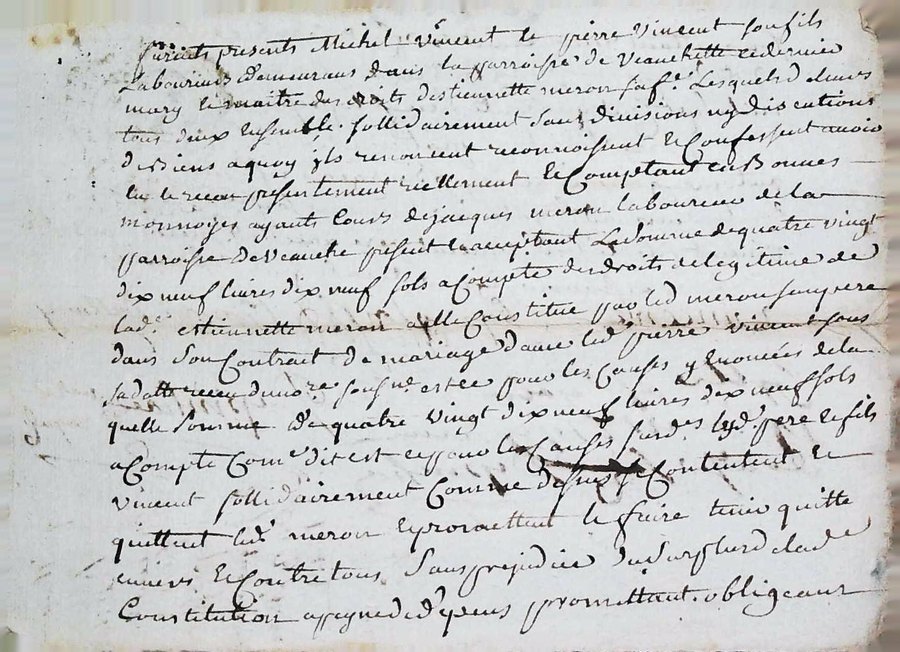 Furents presents Michel vincent le pierre vincent son fils
Laboureurs demeurans dans la parroisse de veauchette ce dernier
mary le maitre des droits destiennette meron sa fe. Lesquels
tous deux Ensemble sollidairement sans divisions ny discutions
de Biens a quoy ils renoncent reconnoissent le Confessent avoir
Eu le receu presentement reellement le Comptant en Bonnes
monnoyes ayants Cours de jacques meron laboureur de la
parroisse de veauche present le acceptant La somme de quatre vingt
dix neuf livres dix neuf sols a Compte des droits de legitime de
lade. estiennette meron a elle Constitue par led meron son pere
dans son Contrait de mariage d'avec led. pierre vincent sous
sa datte receu du nore. sousne. est ce pour les Causes y Enoncées de la
quelle somme de quatre vingt dix neuf livres dix neuf sols
a Compte Come. dit est ce pour les Causes susdes. lesd. pere le fils
vincent sollidairement Comme dessus se Contentent le
quittent led. meron le promettent le faire tenir quitte
envers le Contre tous sans prejudice du surplus de lade
Constitution promettant. obligeant